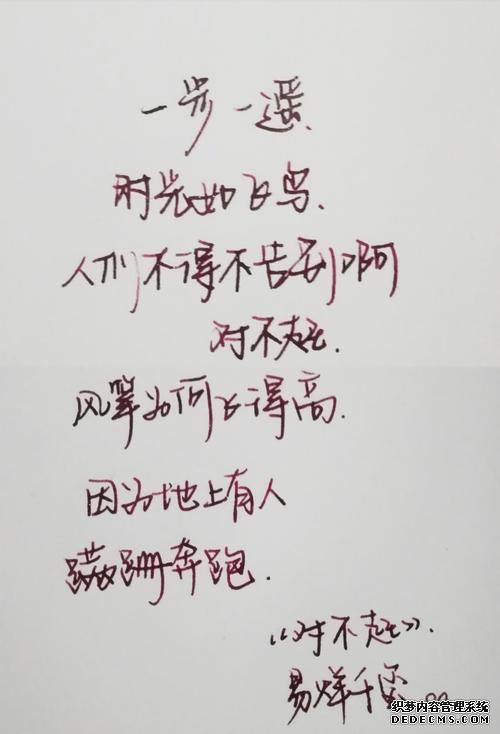 一步一遥
时光如飞鸟.
人们不得不告别啊
对不起.
风筝为何飞得高.
因为地上有人
蹒跚奔跑.
《对不起》.
易烊千玺..
织梦内容管理系统
DEDECMS.COM